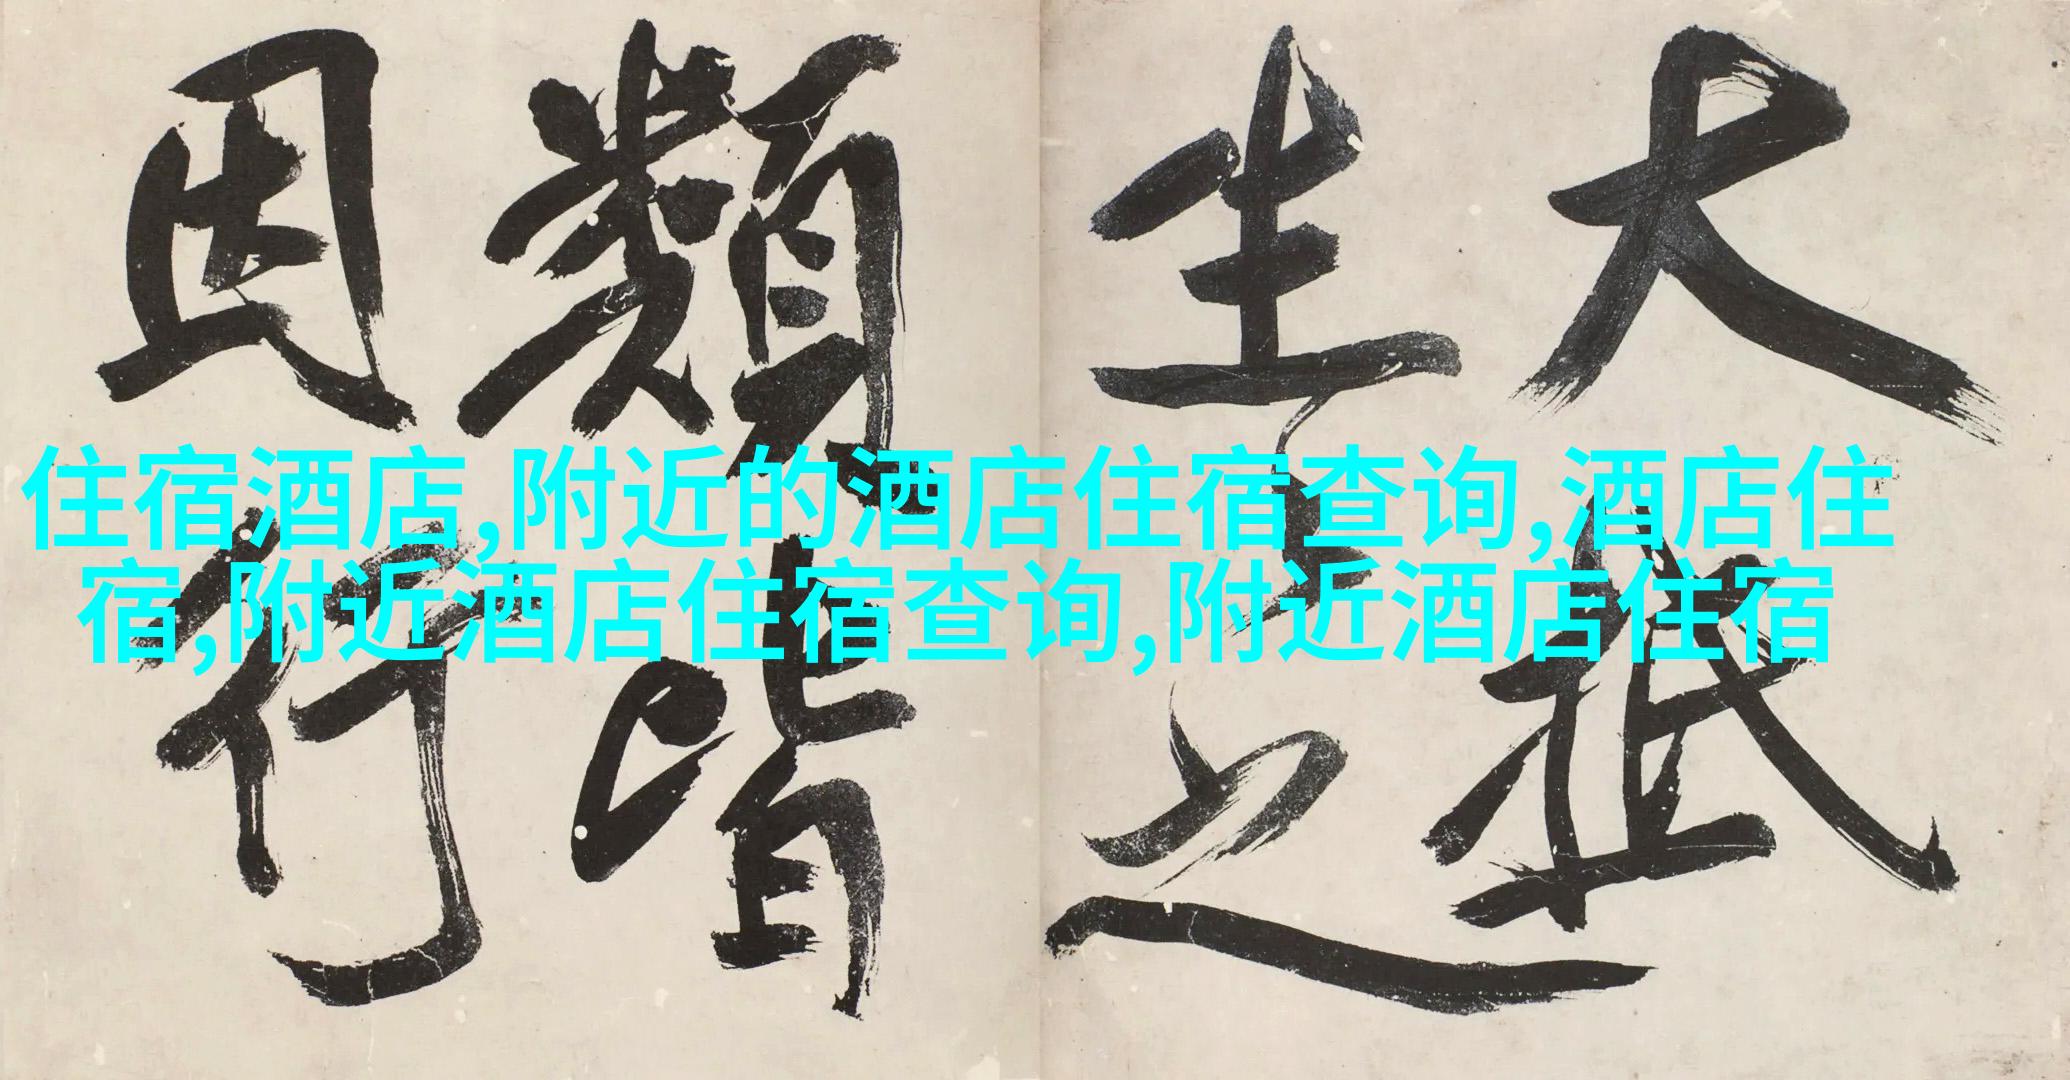 大抵
生々之
類皆
因行
住宿酒店,附近的酒店住宿查询,酒店住
宿,附近酒店住宿查询,附近酒店住宿